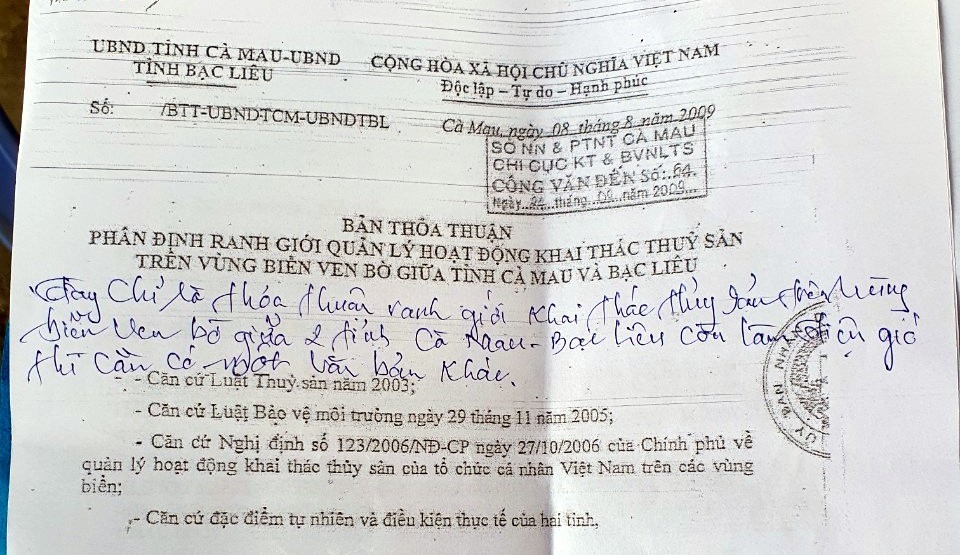 UBND TỈNH CÀ MAU-UBND
TỈNH BẠC LIÊU
CỘNG HÒA XÃ HỘI CHỦ NGHĨA VIỆT NAM
Độc lập – Tự do – Hạnh phúc
Số: /BTT-UBNDTCM-UBNDTBL
Cà Mau, ngày 08 tháng 8 năm 2009
SỞ NN & PTNT CÀ MAU
CHI CỤC KT & BVNLTS
CÔNG VĂN ĐẾN Số:.64.
Ngày..24...tháng...09..năm 2009....
BẢN THỎA THUẬN
PHÂN ĐỊNH RANH GIỚI QUẢN LÝ HOẠT ĐỘNG KHAI THÁC THUỶ SẢN
TRÊN VÙNG BIỂN VEN BỜ GIỮA TỈNH CÀ MAU VÀ BẠC LIÊU
Đây chỉ là thỏa thuận ranh giới khai thác thủy sản trên vùng
biển ven bờ giữa 2 tỉnh Cà Mau - Bạc Liêu còn làm điện gió
thì cần có một văn bản khác.
- Căn cứ Luật Thuỷ sản năm 2003;
- Căn cứ Luật Bảo vệ môi trường ngày 29 tháng 11 năm 2005;
- Căn cứ Nghị định số 123/2006/NĐ-CP ngày 27/10/2006 của Chính phủ về
quản lý hoạt động khai thác thủy sản của tổ chức cá nhân Việt Nam trên các vùng
biển;
- Căn cứ đặc điểm tự nhiên và điều kiện thực tế của hai tỉnh.
ỦY BAN NH